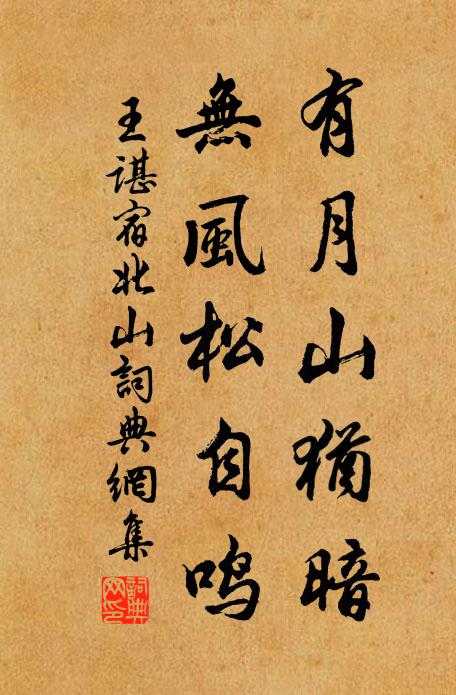 有月山猶暗
無風松自鳴
王諶宿北山詞典網集
詞典
网印